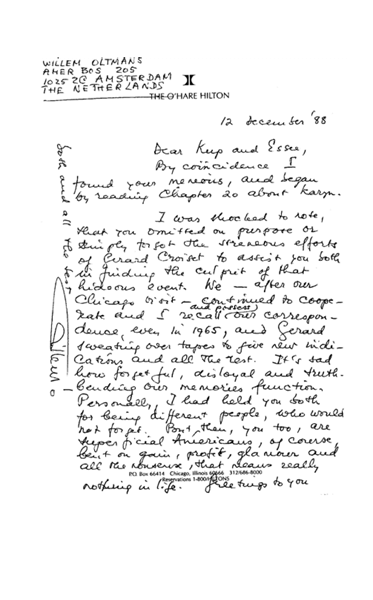 WILLEM OLTMANS
AMER BOS 205
1025 ZG AMSTERDAM
THE NETHERLANDS
THE O'HARE HILTON
12 December '88
Dear Kup and Essee,
By coincidence I
found your memoirs, and began
by reading Chapter 20 about Karyn.
I was shocked to note,
that you omitted on purpose or
simply forgot the streneous efforts
of Gerard Croiset to assist you both
in finding the culprit of that
hideous event. We — after our
Chicago visit — continued to coope-
rate and I recall (and possess) our correspon-
dence, even in 1965, and Gerard
sweating over tapes to give new indi-
cations and all the rest. It's sad
how forgetful, disloyal and truth-
bending our memories function.
Personally, I had held you both
for being different people, who would
not forget. But, then, you too, are
superficial Americans, of course,
bent on gain, profit, glamour and
all the nonsense, that means really
PO Box 66414 Chicago, Illinois 60666 312/686-8000
Reservations 1-800/HILTONS
nothing in life. Greetings to you
both and all the best
Willem O